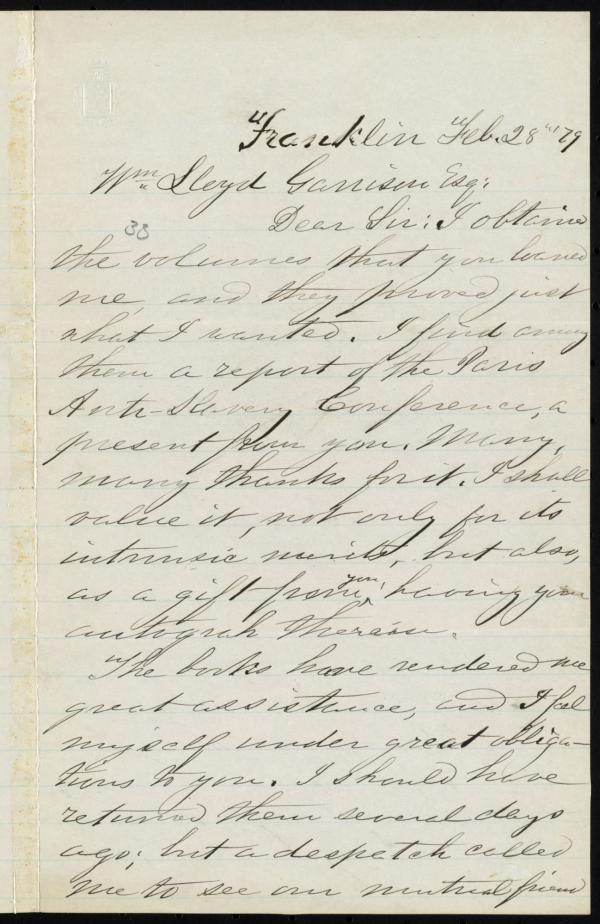 Franklin Feb. 28" '79
Wm. Lloyd Garrison Esq:
33
Dear Sir: I obtained
the volumes that you loaned
me, and they proved just
what I wanted. I find among
them a report of the Paris
Anti-Slavery Conference, a
present from you. Many,
many thanks for it. I shall
value it, not only for its
intrinsic merits, but also,
as a gift from you, having your
autograh therein.
The books have rendered me
great assistance, and I feel
myself under great obliga-
tions to you. I should have
returned them several days
ago; but a despatch called
me to see our mutual friend